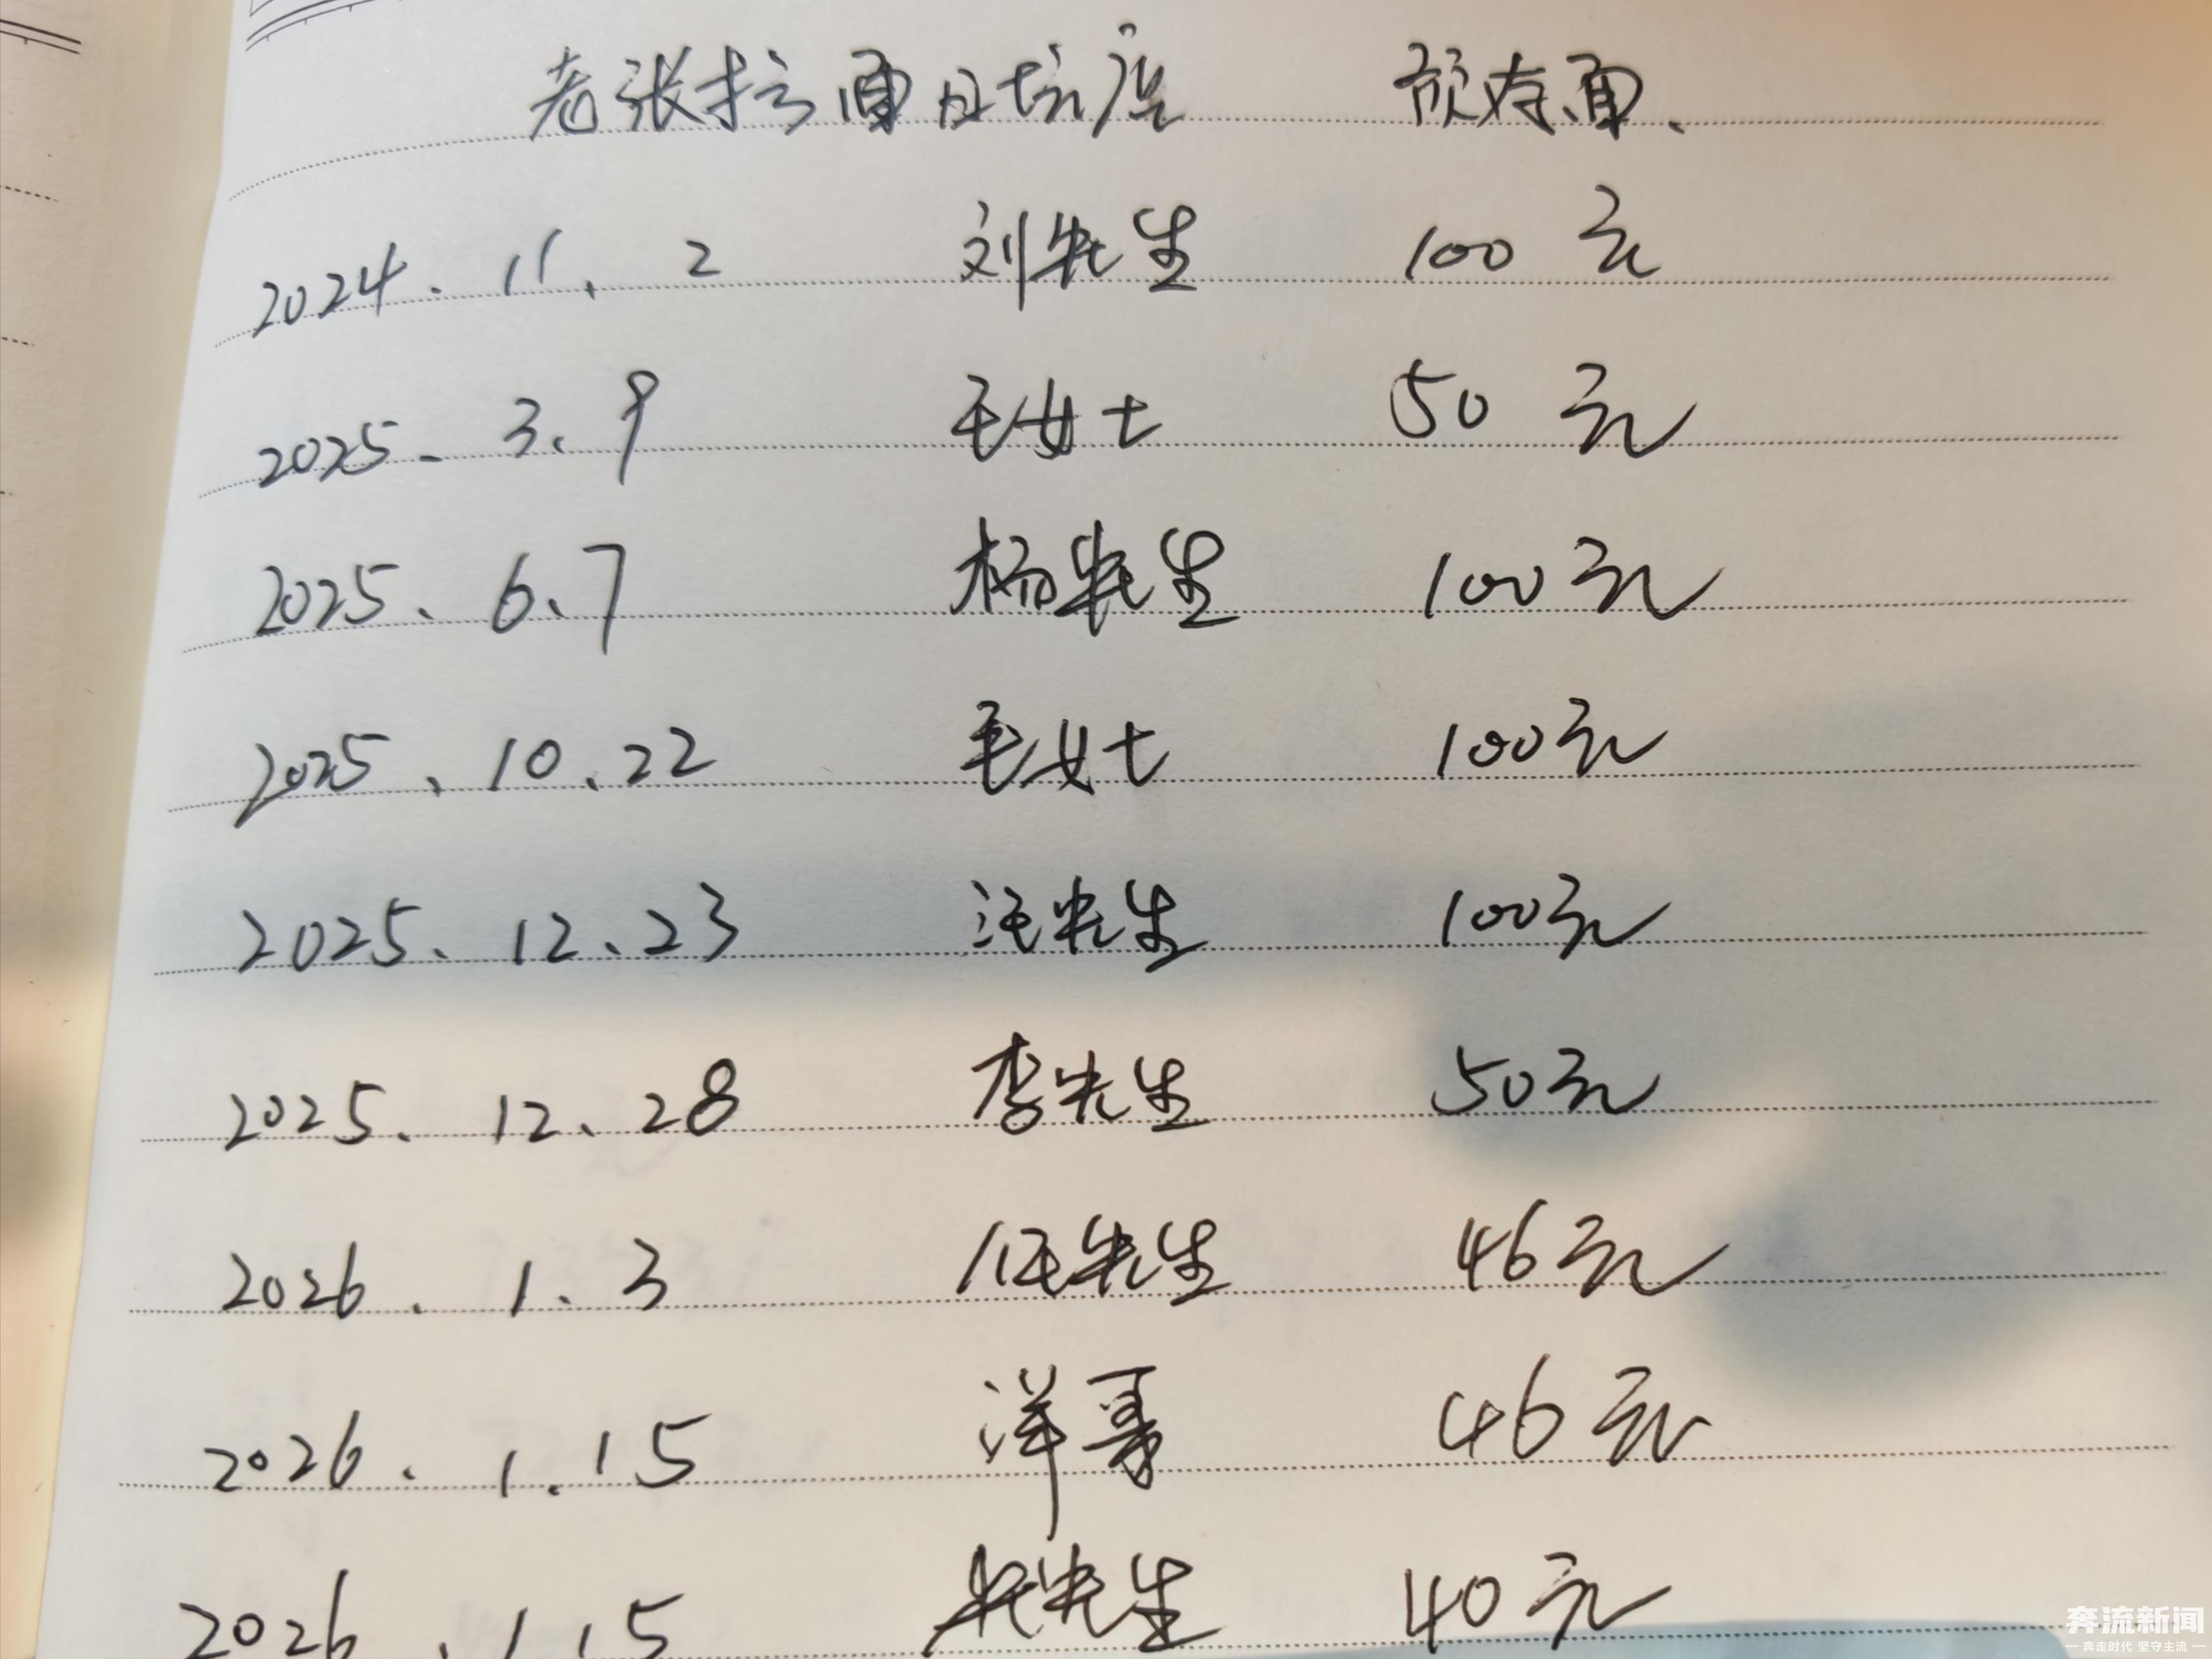 老张拉面日坑店 预存面、
2024.11.2 刘先生 100元
2025.3.9 毛女士 50元
2025.6.7 杨先生 100元
2025.10.22 毛女士 100元
2025.12.23 汪先生 100元
2025.12.28 李先生 50元
2026.1.3 任先生 46元
2026.1.15 洋哥 46元
2026.1.15 先生 40元
奔流新闻
奔走时代 坚守主流